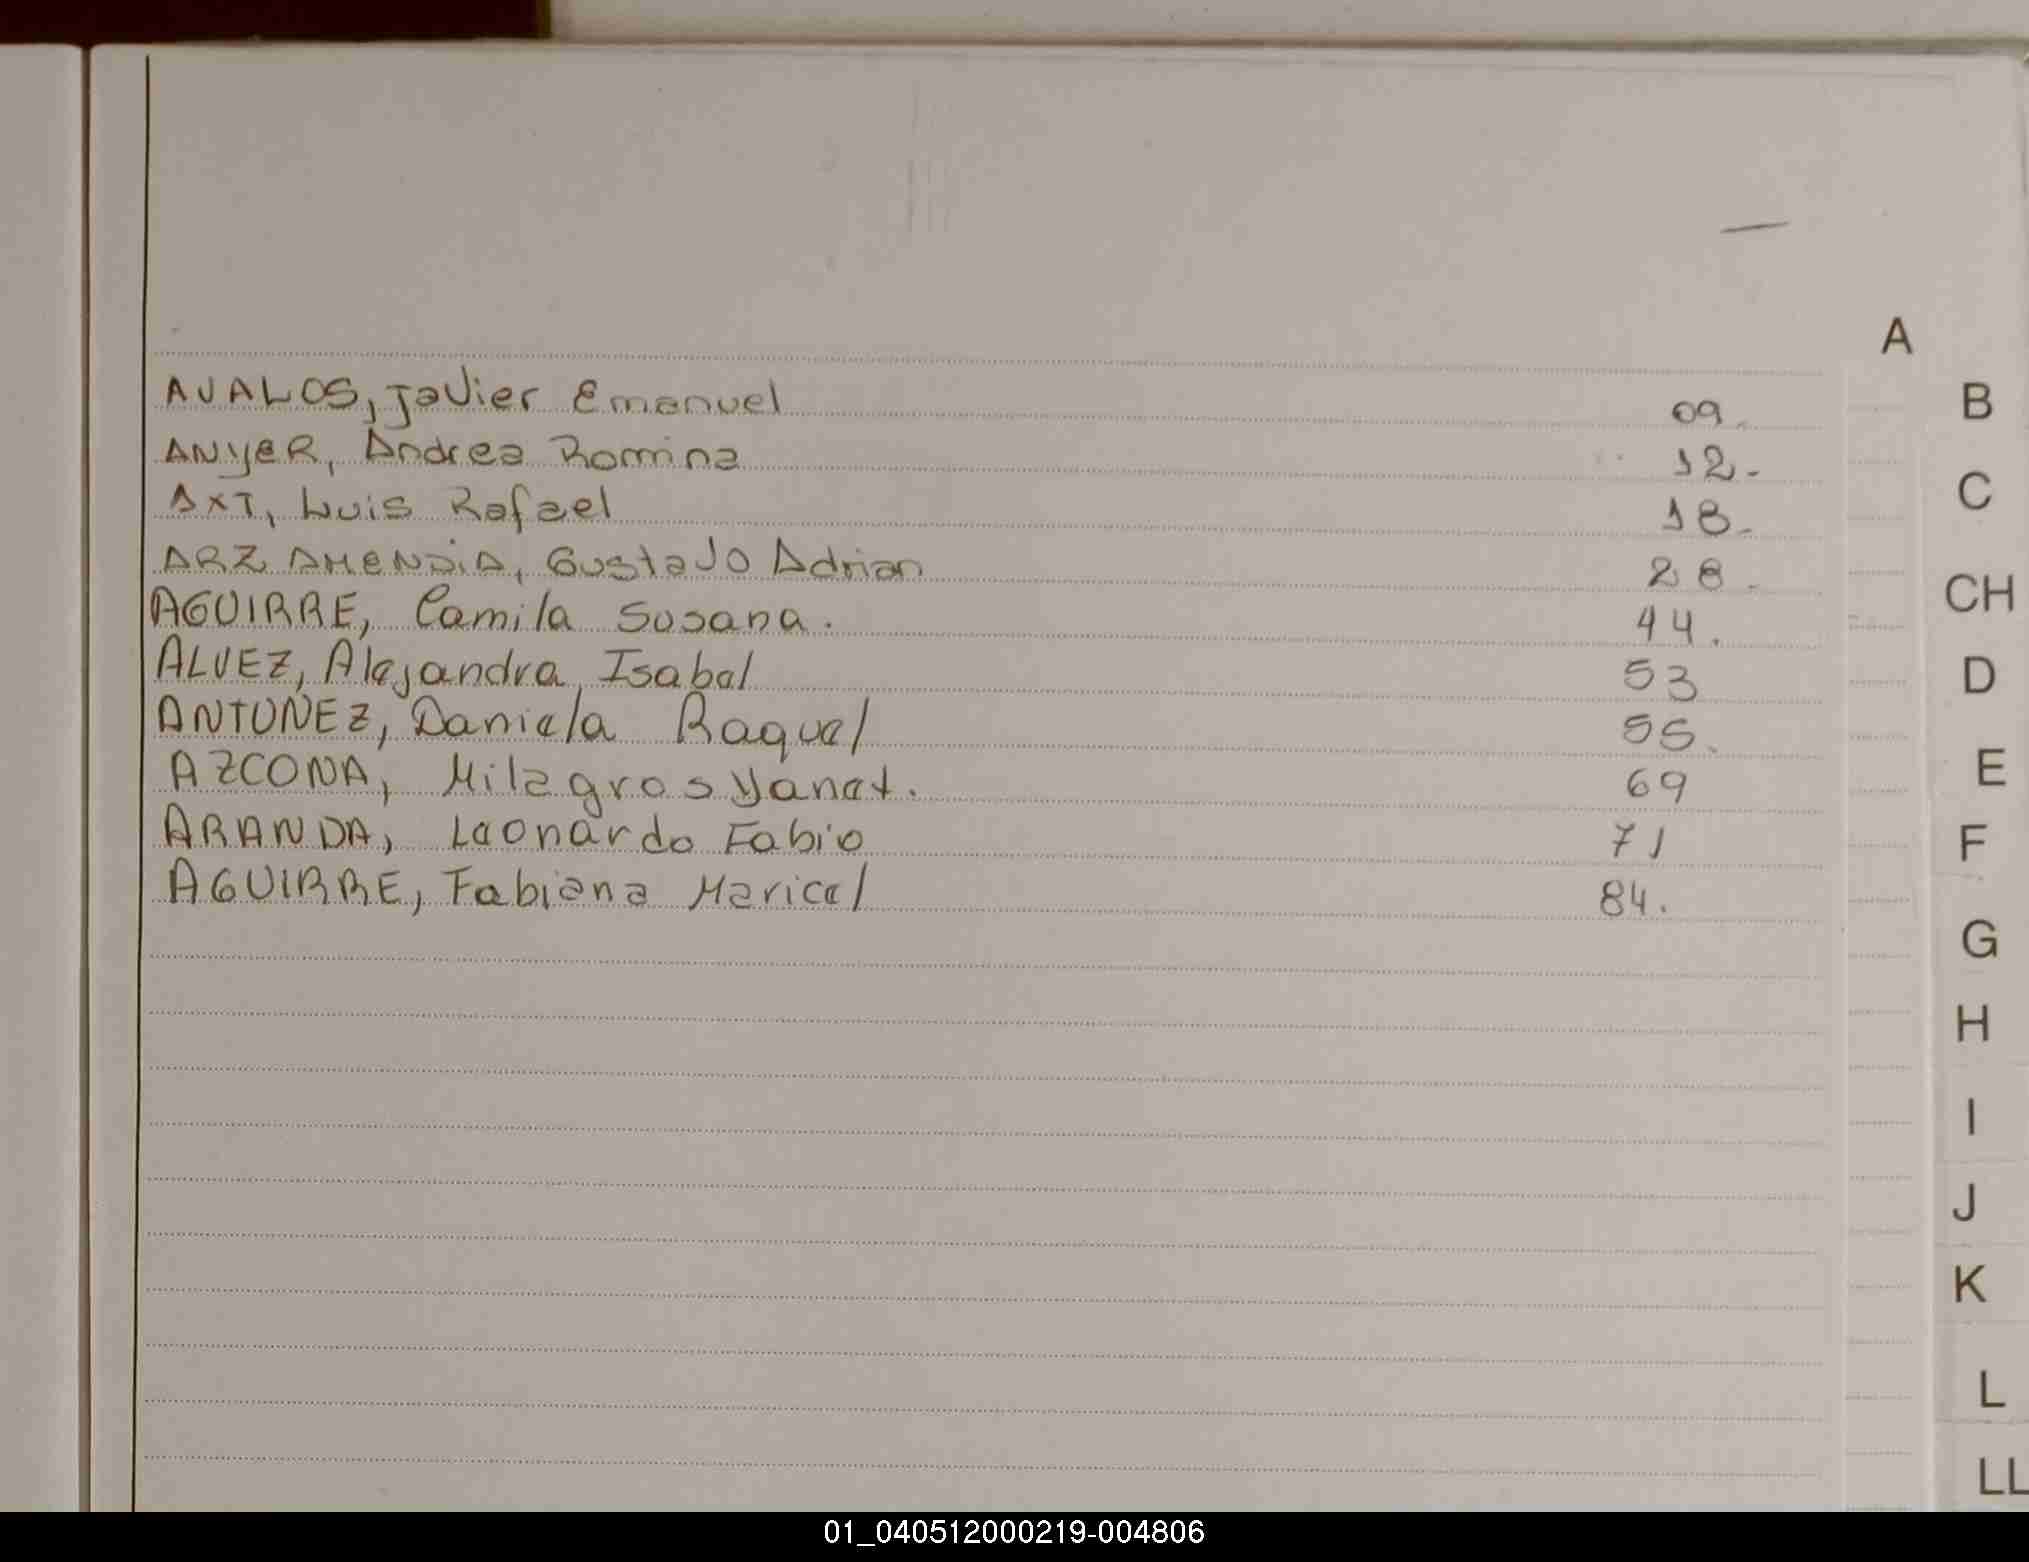 A
AVALOS, Javier Emanuel 09.
B
ANYER, Andrea Romina 12.
AXT, Luis Rafael 18.
C
ARZAMENDIA, Gustavo Adrian 28.
CH
AGUIRRE, Camila Susana. 44.
ALVEZ, Alejandra Isabel 53
D
ANTUNEZ, Daniela Raquel 55.
AZCONA, Milagros Yanet. 69
E
ARANDA, Leonardo Fabio 71
F
AGUIRRE, Fabiana Maricel 84.
G
H
I
J
K
L
LL
01_040512000219-004806